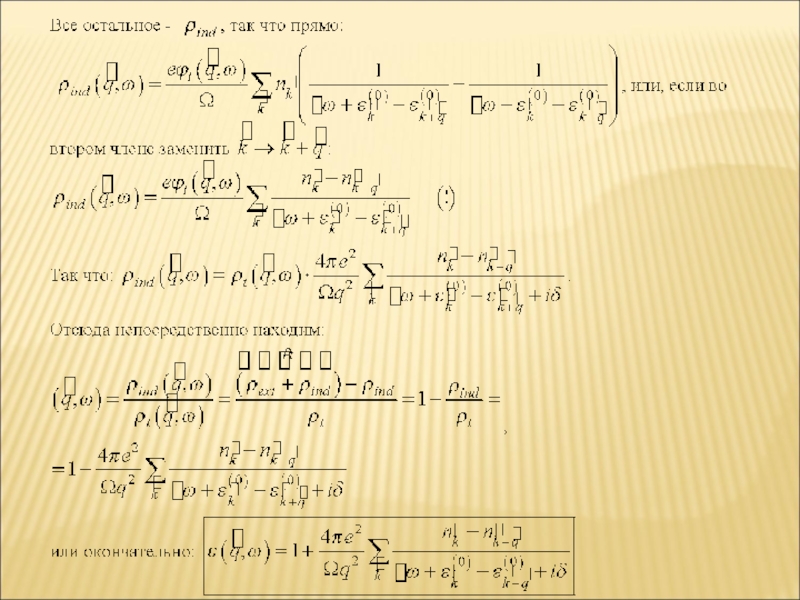 Все остальное - ρ_ind , так что прямо:
ρ_ind(q,ω) = eφ_t(q,ω)/Ω ∑_k n_k (1/(□ω + ε_k^(0) − ε_{k+q}^(0)) − 1/(□ω − ε_k^(0) − ε_{k q}^(0))) , или, если во
втором члене заменить k → k + q :
ρ_ind(q,ω) = eφ_t(q,ω)/Ω ∑_k (n_k − n_{k q})/(□ω + ε_k^(0) − ε_{k+q}^(0)) (:)
Так что: ρ_ind(q,ω) = ρ_t(q,ω)· 4πe²/Ωq² ∑_k (n_k − n_{k−q})/(□ω + ε_k^(0) − ε_{k+q}^(0) + iδ) .
Отсюда непосредственно находим:
(q,ω) = ρ_ind(q,ω)/ρ_t(q,ω) = ((ρ_ext + ρ_ind) − ρ_ind)/ρ_t = 1 − ρ_ind/ρ_t = ,
= 1 − 4πe²/Ωq² ∑_k (n_k − n_{k q})/(□ω + ε_k^(0) − ε_{k+q}^(0) + iδ)
или окончательно: ε(q,ω) = 1 + 4πe²/Ωq² ∑_k (n_k − n_{k−q})/(□ω + ε_k^(0) − ε_{k−q}^(0) + iδ)